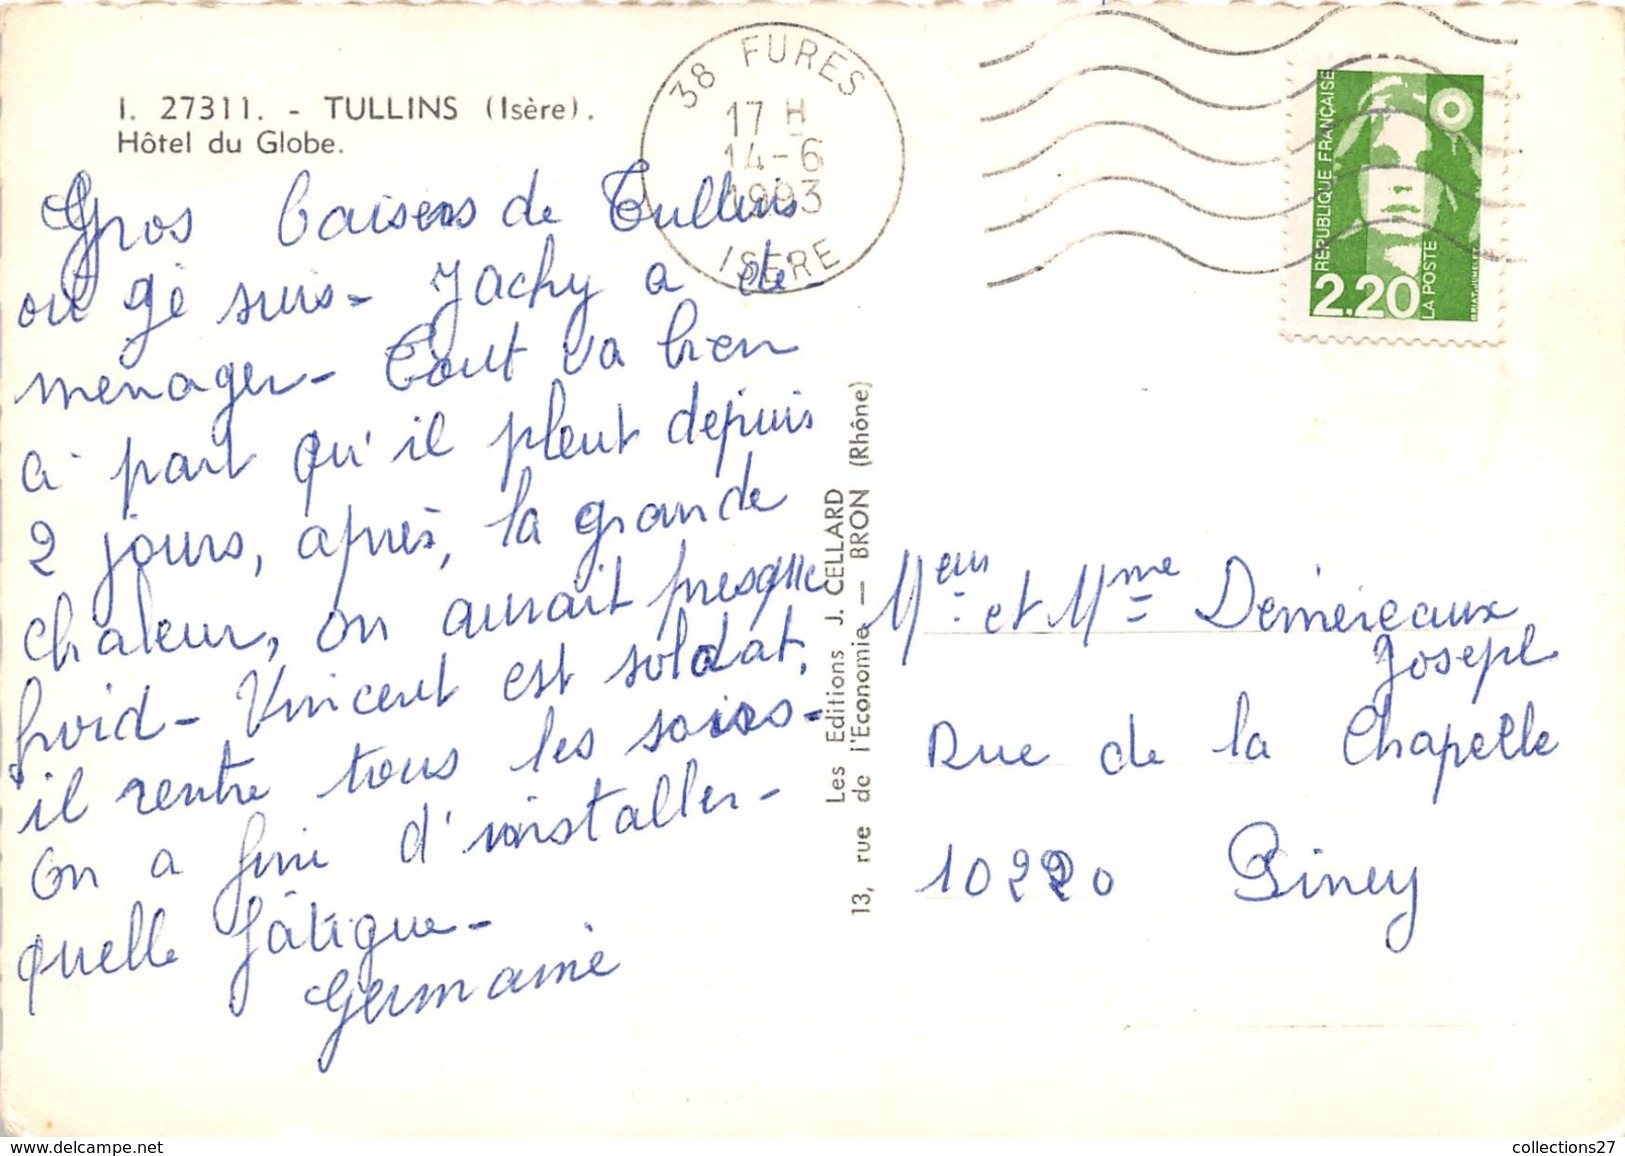 I. 27311. - TULLINS (Isère).
Hôtel du Globe.
38 FURES
17 H
14-6
1993
ISERE
REPUBLIQUE FRANÇAISE
2.20
LA POSTE
BRIAT-JUMELET
Gros baisers de Tullins
où gé suis - Jachy a dé-
menager - Tout va bien
à part qu'il pleut depuis
2 jours, après, la grande
chaleur, on aurait presque
froid - Vincent est soldat,
il rentre tous les soirs -
On a fini d'installer -
quelle fâtigue -
Germaine
Les Editions J. CELLARD
13, rue de l'Economie - BRON (Rhône)
Meur et Mme Deméreaux
Joseph
Rue de la Chapelle
10220 Piney
www.delcampe.net
collections27